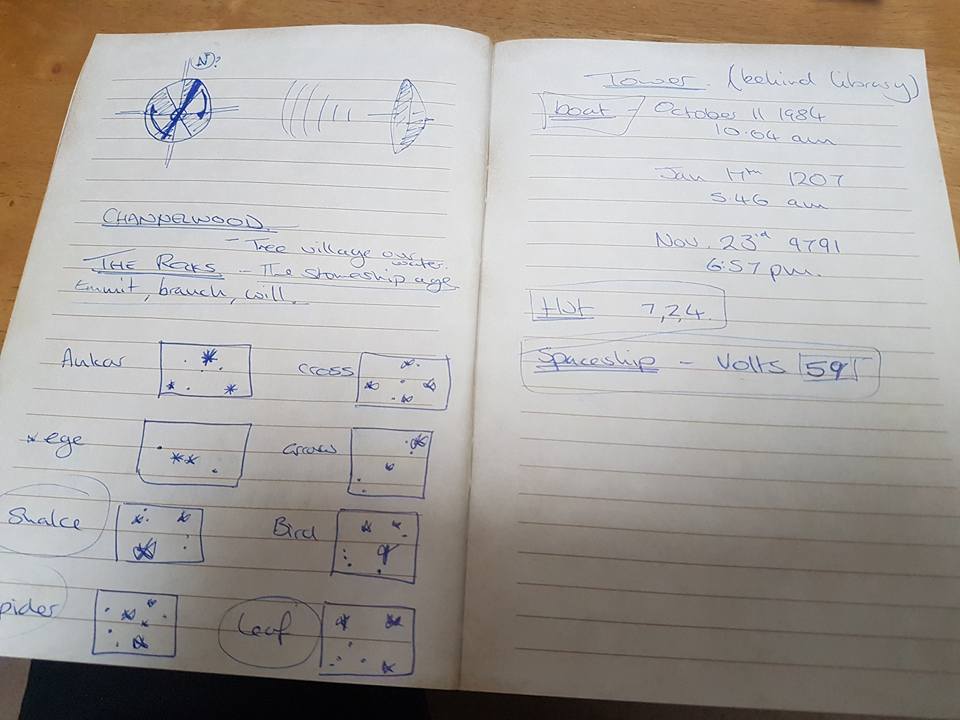 N?
CHANNELWOOD
- Tree village
water.
THE ROKS - The stoneship age
Emmit, branch, will.
Ankar
cross
eye
arrow
Snake
Bird
pider
Leaf
Tower. (behind library)
boat October 11 1984
10.04 am
Jan 17th 1207
5.46 am
Nov. 23rd 9791
6:57 pm.
Hut 7,2,4.
Spaceship - Volts 59